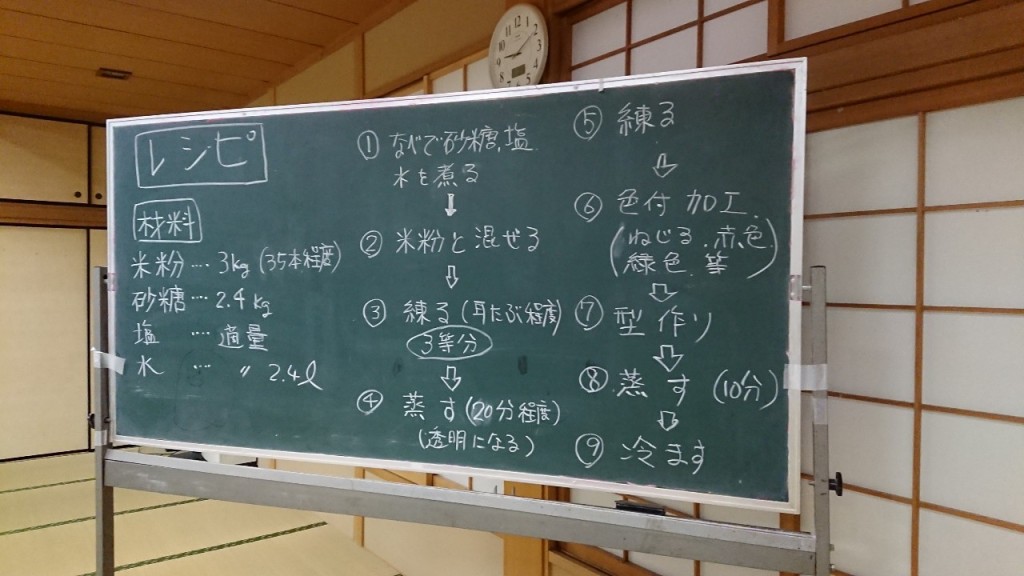 レシピ
材料
米粉 … 3kg (35本程度)
砂糖 … 2.4kg
塩 … 適量
水 … 〃 2.4ℓ
① なべで砂糖、塩
水を煮る
⇩
② 米粉と混ぜる
⇩
③ 練る(耳たぶ程度)
3等分
⇩
④ 蒸す(20分程度)
(透明になる)
⑤ 練る
⇩
⑥ 色付加工
(ねじる、赤色
緑色、等)
⇩
⑦ 型作り
⇩
⑧ 蒸す (10分)
⇩
⑨ 冷ます